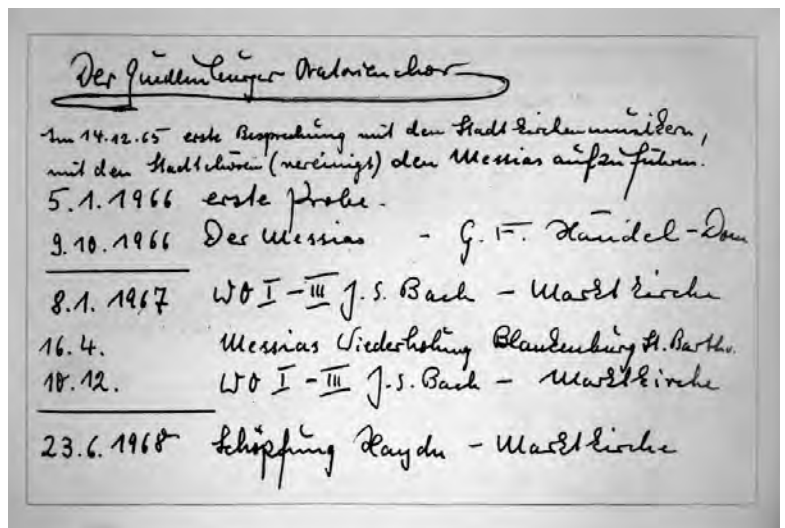 Der Quedlinburger Oratorienchor
Im 14.12.65 erste Besprechung mit den Stadtkirchenmusikern,
mit den Stadtchören (vereinigt) den Messias aufzuführen.
5.1.1966 erste Probe.
9.10.1966 Der Messias - G. F. Händel - Dom
8.1.1967 WO I - III J. S. Bach - Marktkirche
16.4. Messias Wiederholung Blankenburg St. Bartho.
10.12. WO I - III J. S. Bach - Marktkirche
23.6.1968 Schöpfung Haydn - Marktkirche